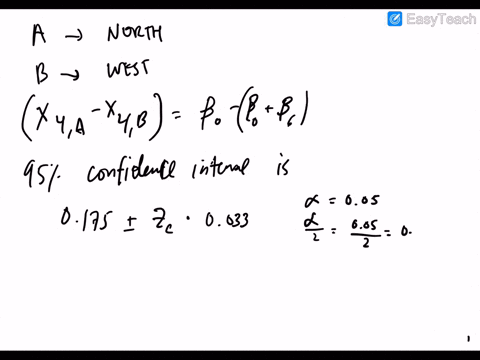 EasyTeach
A → NORTH
B → WEST
(X4,A - X4,B) = β0 - (β0 + β6)
95% confidence interval is
0.175 ± Zc · 0.033
α = 0.05
α/2 = 0.05/2 = 0.